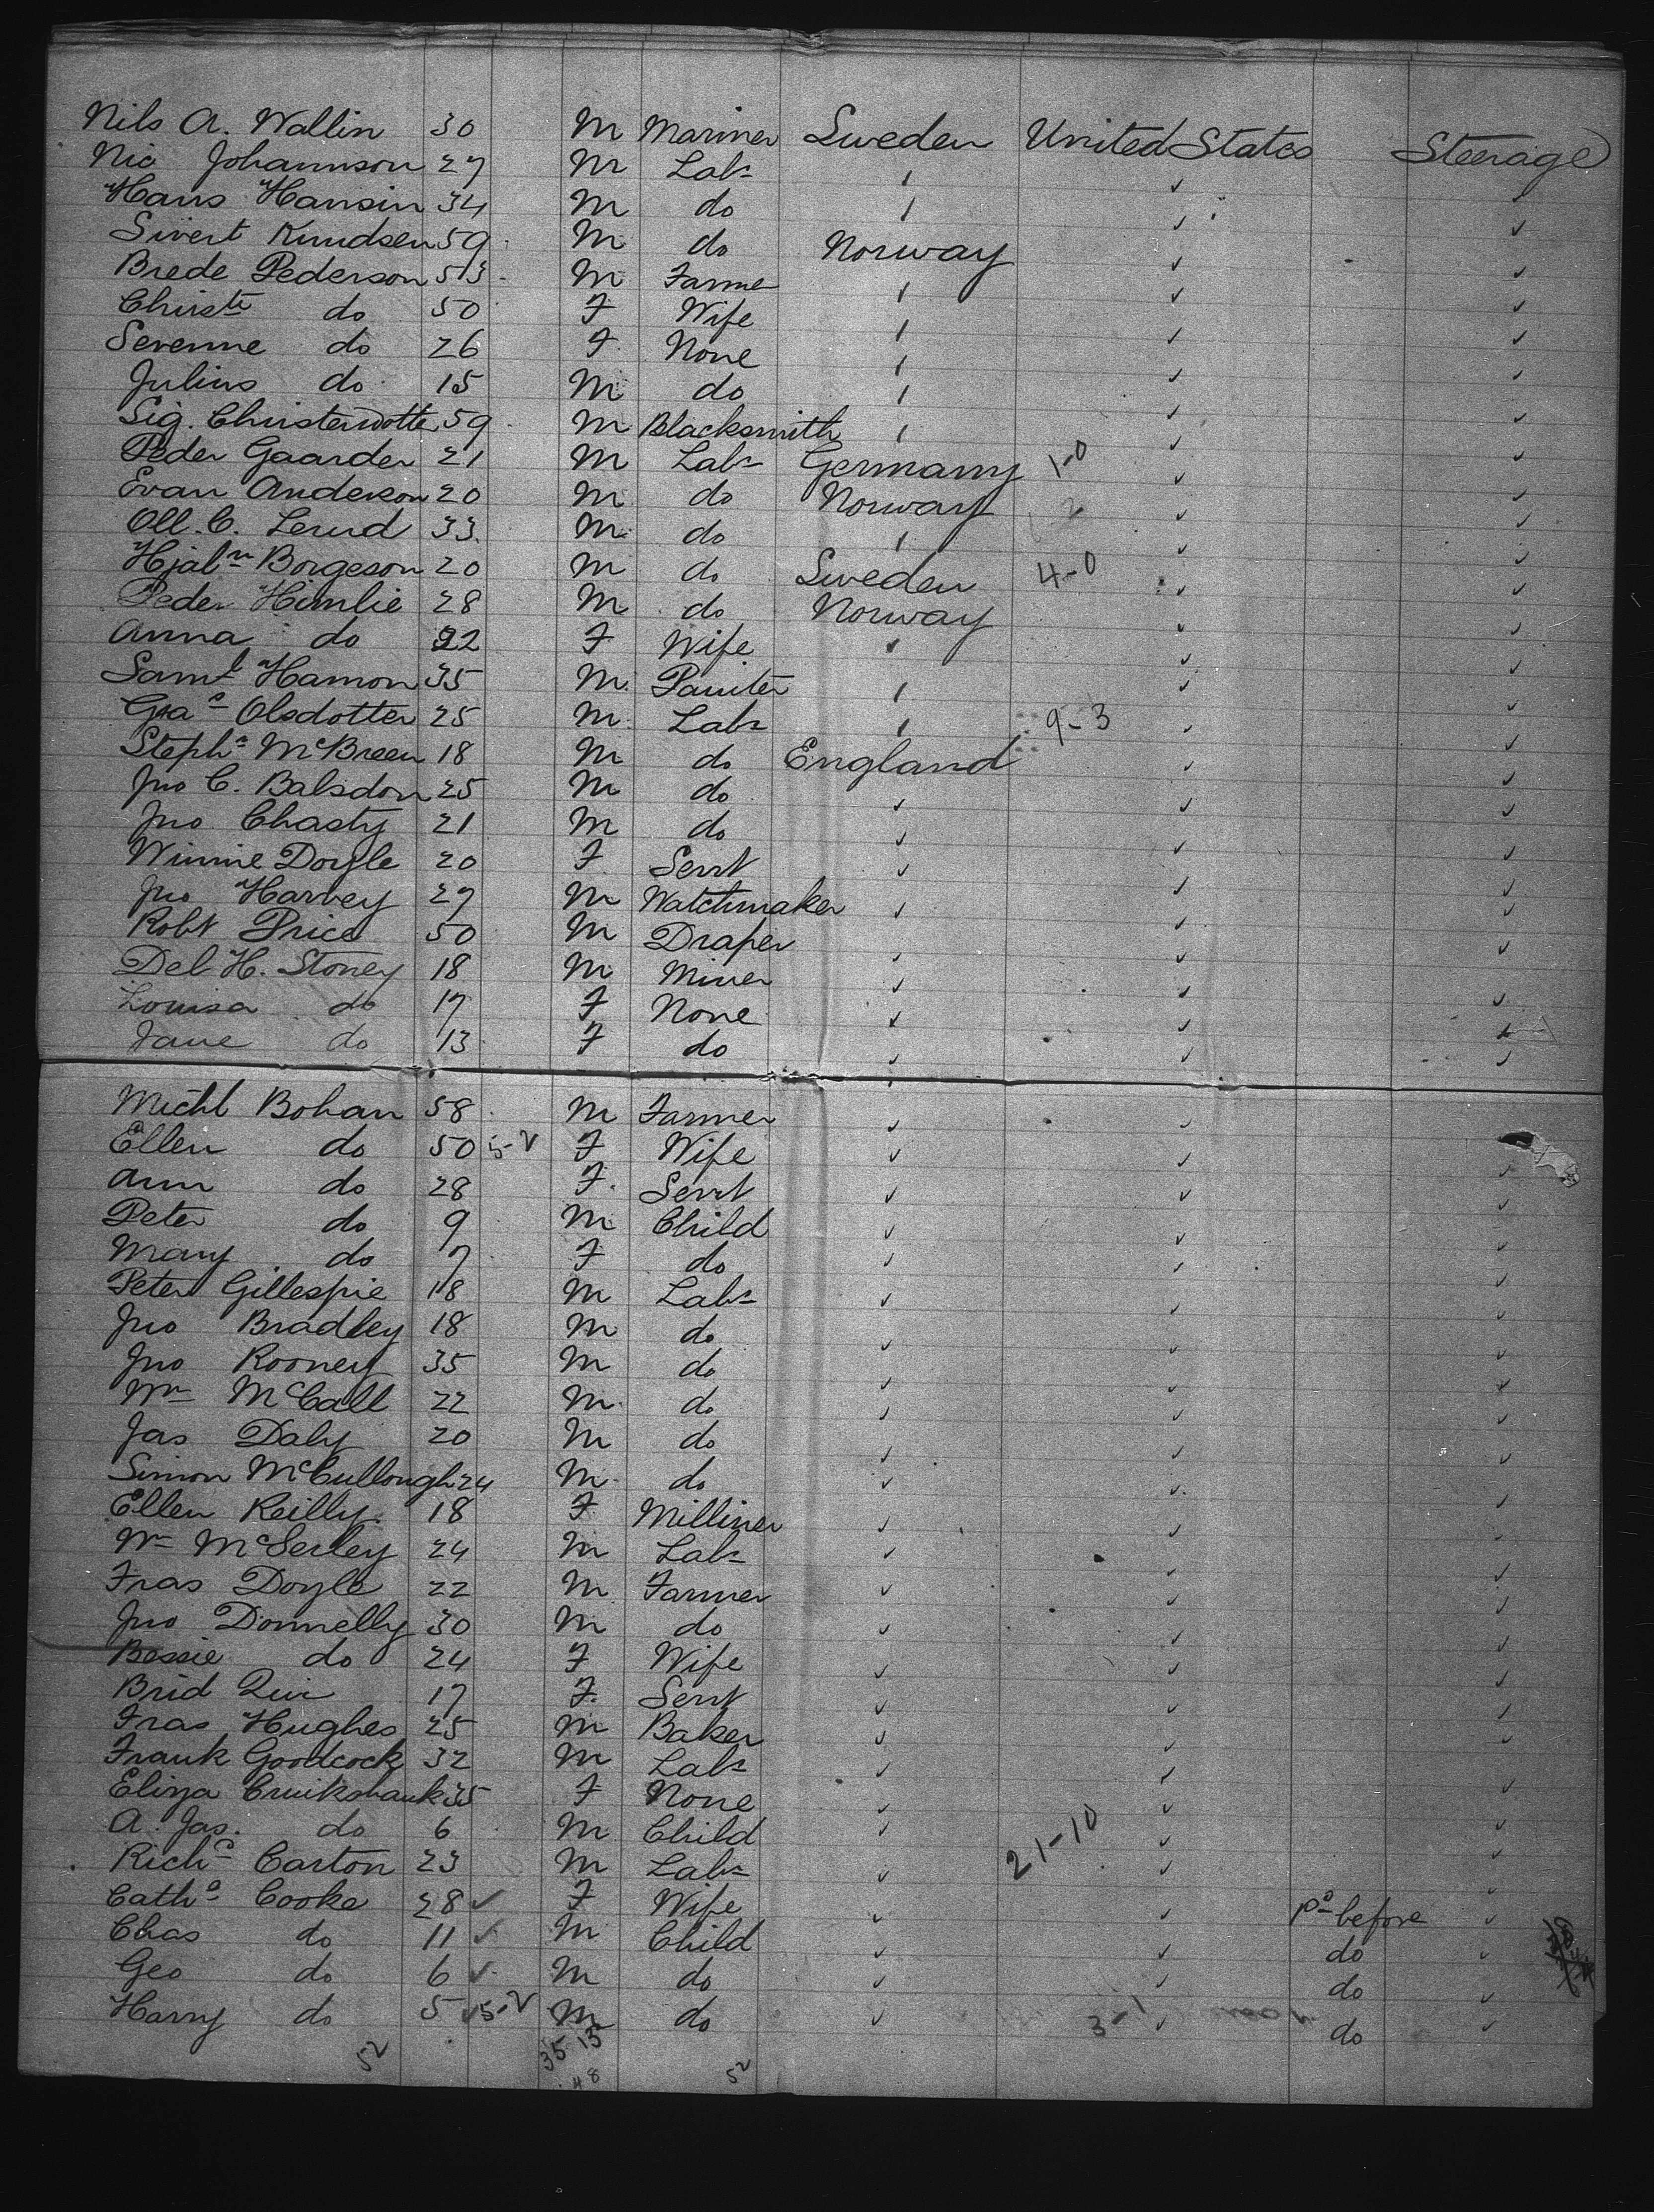 Nils A. Wallin 30 M Mariner Sweden United States Steerage
Nic Johannson 27 M Labr " ✓ ✓
Hans Hansin 34 M do " ✓ ✓
Sivert Knudsen 59 M do Norway ✓ ✓
Brede Pederson 53 M Farmer " ✓ ✓
Christe do 50 F Wife " ✓ ✓
Severine do 26 F None " ✓ ✓
Julius do 15 M do " ✓ ✓
Sig. Christendotte 59 M Blacksmith " ✓ ✓
Peder Gaarder 21 M Labr Germany 1-0 ✓ ✓
Evan Anderson 20 M do Norway 2 ✓ ✓
Oll. C. Lerud 33 M do " ✓ ✓
Hjalm Borgeson 20 M do Sweden 4-0 ✓ ✓
Peder Himlie 28 M do Norway ✓ ✓
Anna do 22 F Wife " ✓ ✓
Saml Hamon 35 M Painter " ✓ ✓
Olsdotter 25 M Labr " 9-3 ✓ ✓
Stephn McBreen 18 M do England ✓ ✓
Jno C. Balsdon 25 M do ✓ ✓ ✓
Jno Chasty 21 M do ✓ ✓ ✓
Winnie Doyle 20 F Servt ✓ ✓ ✓
Jno Harvey 27 M Watchmaker ✓ ✓ ✓
Robt Price 50 M Draper ✓ ✓ ✓
Del H. Stoney 18 M Miner ✓ ✓ ✓
Louisa do 17 F None ✓ ✓ ✓
Jane do 13 F do ✓ ✓ ✓
Michl Bohan 58 M Farmer ✓ ✓
Ellen do 50 5-2 F Wife ✓ ✓ ✓
Ann do 28 F Servt ✓ ✓ ✓
Peter do 9 M Child ✓ ✓ ✓
Mary do 7 F do ✓ ✓ ✓
Peter Gillespie 18 M Labr ✓ ✓ ✓
Jno Bradley 18 M do ✓ ✓ ✓
Jno Rooney 35 M do ✓ ✓ ✓
Wm McCall 22 M do ✓ ✓ ✓
Jas Daly 20 M do ✓ ✓ ✓
Simon McCullough 24 M do ✓ ✓ ✓
Ellen Reilly 18 F Milliner ✓ ✓ ✓
Wm McSerley 24 M Labr ✓ ✓ ✓
Fras Doyle 22 M Farmer ✓ ✓ ✓
Jno Donnelly 30 M do ✓ ✓ ✓
Bessie do 24 F Wife ✓ ✓ ✓
Brid 17 F Servt ✓ ✓ ✓
Fras Hughes 25 M Baker ✓ ✓ ✓
Frank Goodcock 32 M Labr ✓ ✓ ✓
Eliza Cruikshank 35 F None ✓ ✓ ✓
A. Jas. do 6 M Child ✓ ✓ ✓
Richd Carton 23 M Labr ✓ 21-10 ✓ ✓
Cathe Cooke 28 ✓ F Wife ✓ ✓ before ✓
Chas do 11 ✓ M Child ✓ ✓ do ✓
Geo do 6 ✓ M do ✓ ✓ do ✓
Harry do 5 ✓ 5-2 M do ✓ 3-1 ✓ do ✓
52 35 13 52
48